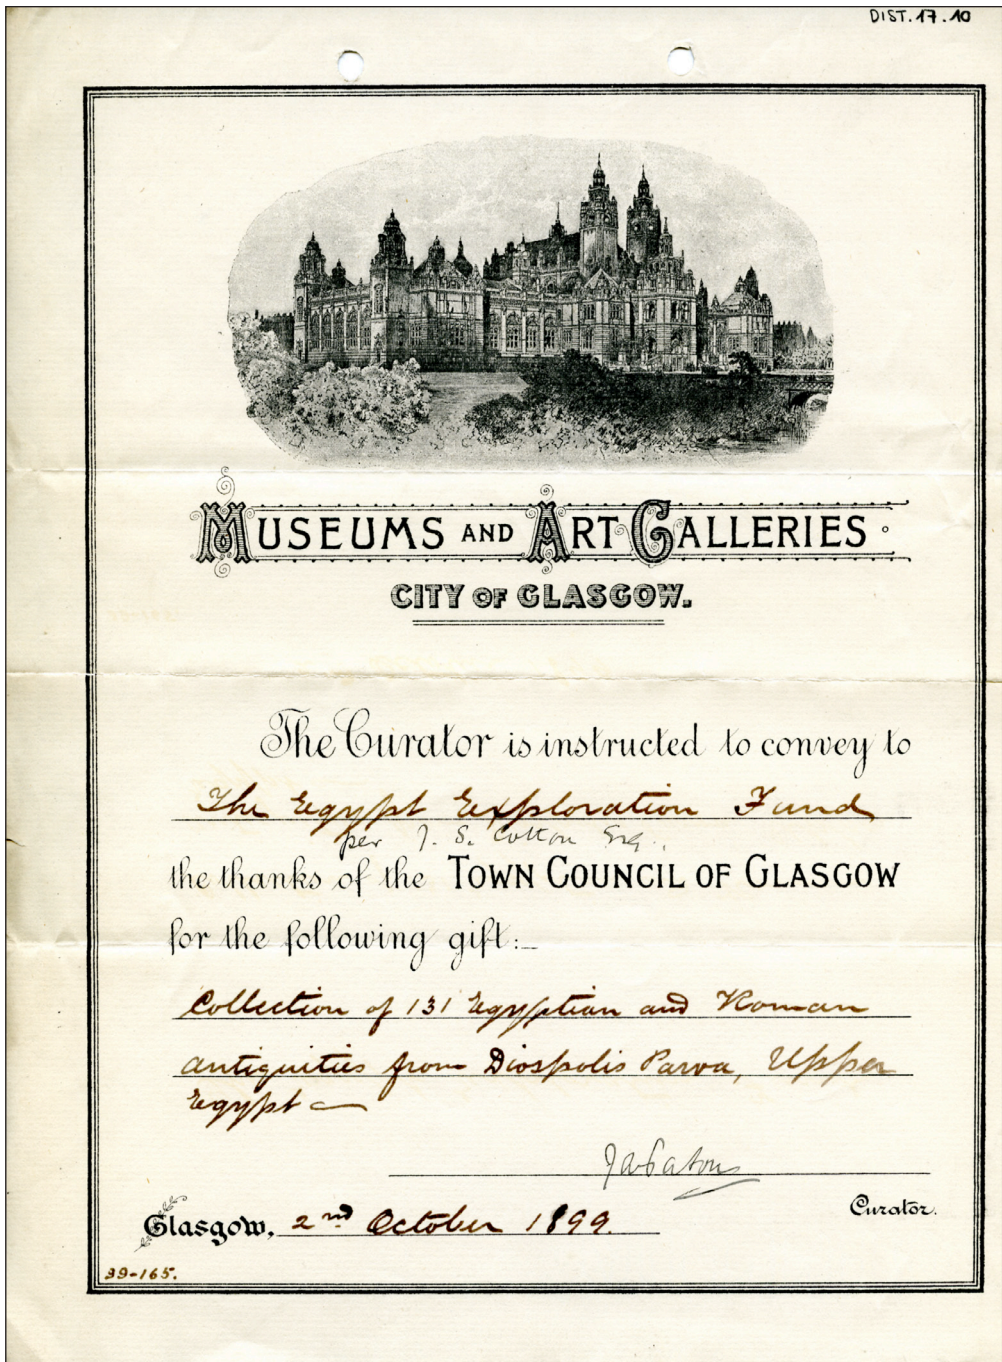 DIST.17.10
MUSEUMS AND ART GALLERIES
CITY OF GLASGOW.
The Curator is instructed to convey to
The Egypt Exploration Fund
per J. S. Cotton Esq.,
the thanks of the TOWN COUNCIL OF GLASGOW
for the following gift:—
Collection of 131 Egyptian and Roman
antiquities from Diospolis Parva, Upper
Egypt —
J A Paton
Curator.
Glasgow, 2nd October 1899.
99-165.